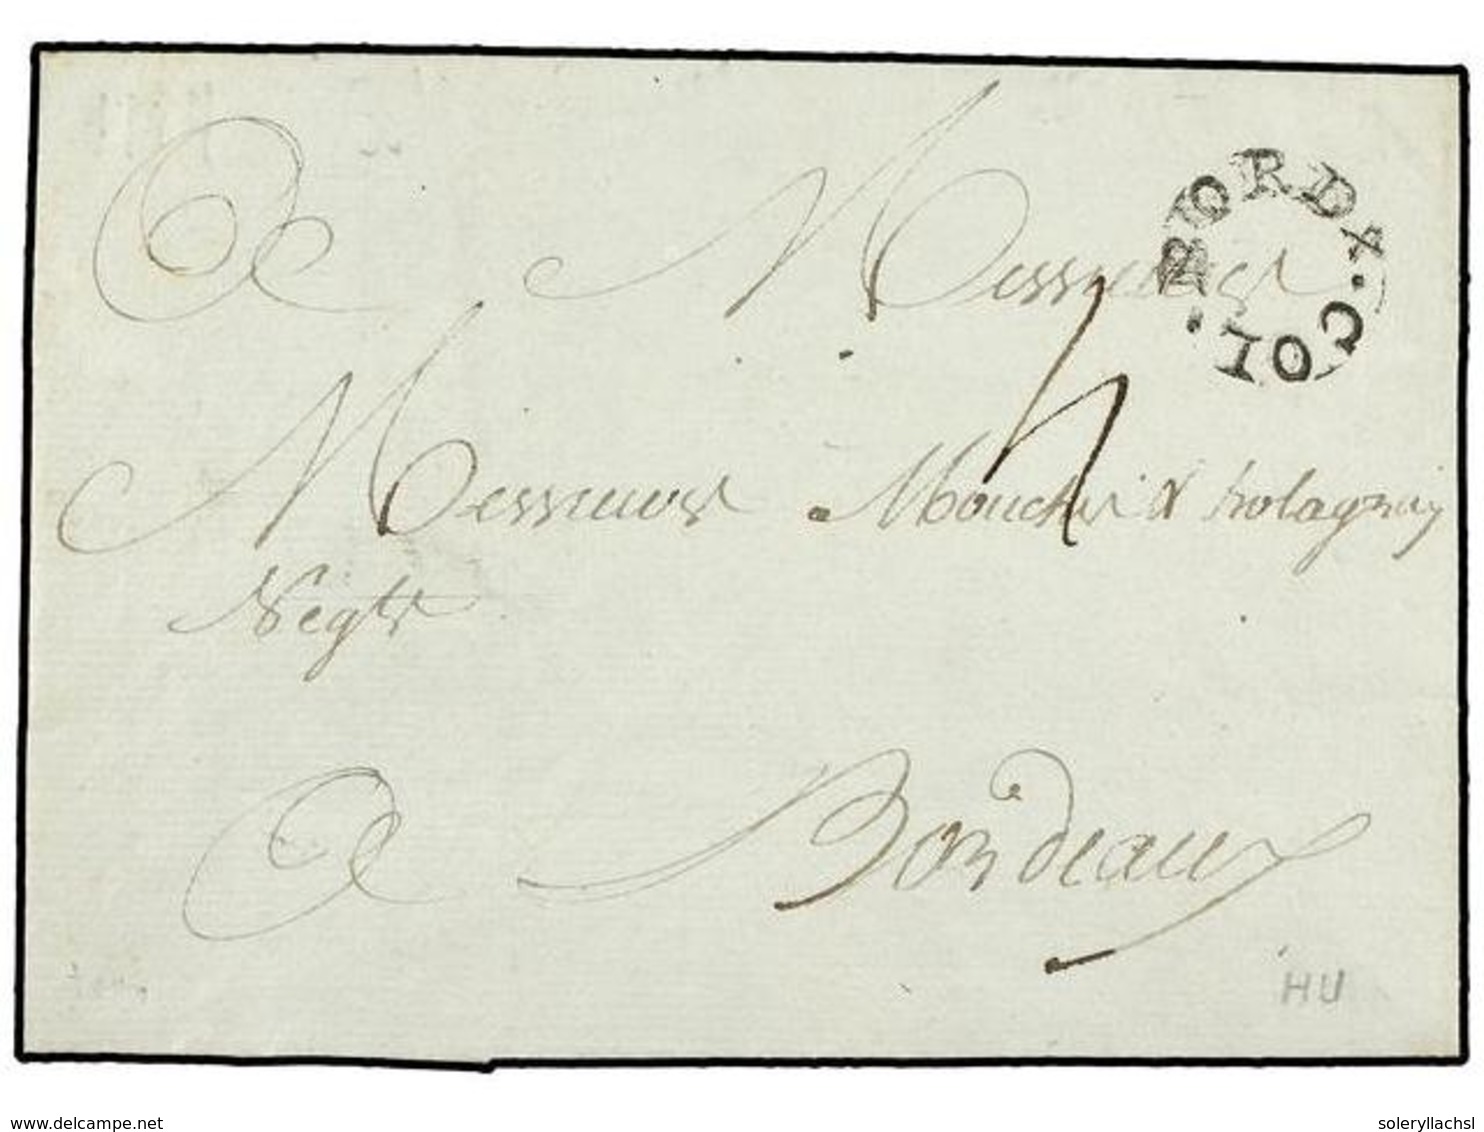 A Messieurs
BORDX. COL.
Messieurs Mouchet & holagnuy
Negts
A Bordeaux
HU
www.delcampe.net
soleryllachs1